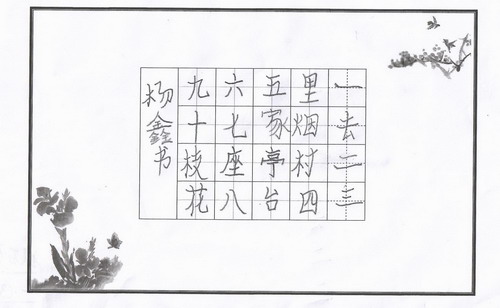 一去二三
里烟村四
五家亭台
六七座八
九十枝花
杨鑫书